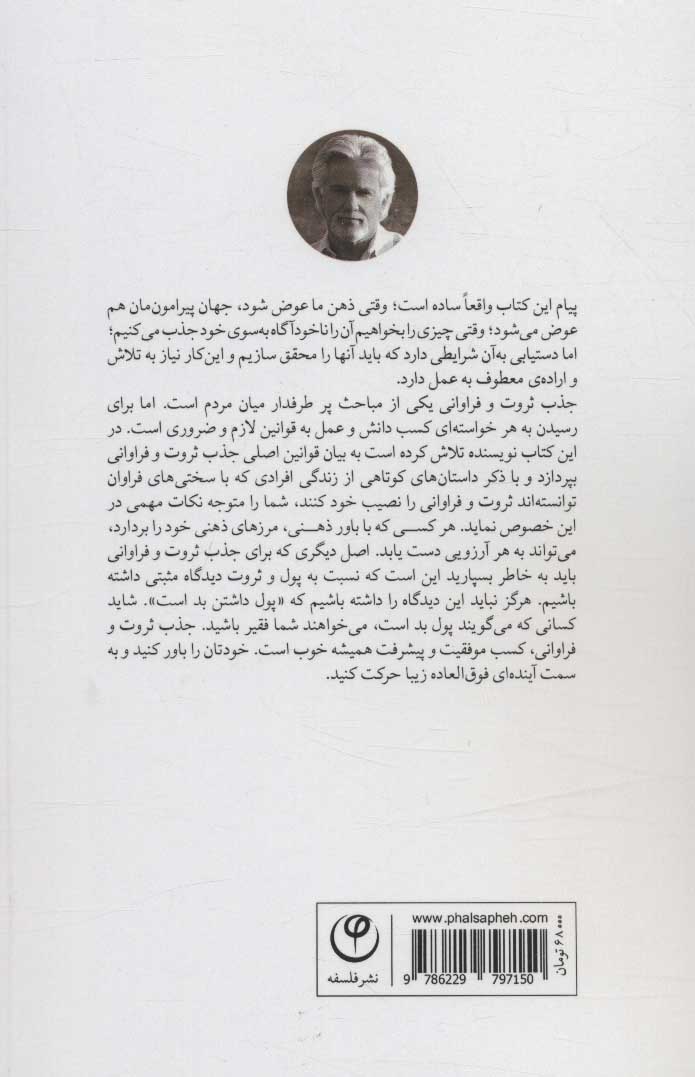 پیام این کتاب واقعاً ساده است؛ وقتی ذهن ما عوض شود، جهان پیرامون‌مان هم
عوض می‌شود؛ وقتی چیزی را بخواهیم آن را ناخودآگاه به‌سوی خود جذب می‌کنیم؛
اما دستیابی به‌آن شرایطی دارد که باید آنها را محقق سازیم و این‌کار نیاز به تلاش
و اراده‌ی معطوف به عمل دارد.
جذب ثروت و فراوانی یکی از مباحث پر طرفدار میان مردم است. اما برای
رسیدن به هر خواسته‌ای کسب دانش و عمل به قوانین لازم و ضروری است. در
این کتاب نویسنده تلاش کرده است به بیان قوانین اصلی جذب ثروت و فراوانی
بپردازد و با ذکر داستان‌های کوتاهی از زندگی افرادی که با سختی‌های فراوان
توانسته‌اند ثروت و فراوانی را نصیب خود کنند، شما را متوجه نکات مهمی در
این خصوص نماید. هر کسـی که با باور ذهـنی، مرزهای ذهنی خود را بردارد،
می‌تواند به هر آرزویی دست یابد. اصل دیگری که برای جذب ثروت و فراوانی
باید به خاطر بسپارید این است که نسبت به پول و ثروت دیدگاه مثبتی داشته
باشیم. هرگز نباید این دیدگاه را داشته باشیم که «پول داشتن بد است». شاید
کسانی که می‌گویند پول بد است، می‌خواهند شما فقیر باشید. جذب ثروت و
فراوانی، کسب موفقیت و پیشرفت همیشه خوب است. خودتان را باور کنید و به
سمت آینده‌ای فوق‌العاده زیبا حرکت کنید.
www.phalsapheh.com
۶۸۰۰۰ تومان
9 786229 797150
نشر فلسفه